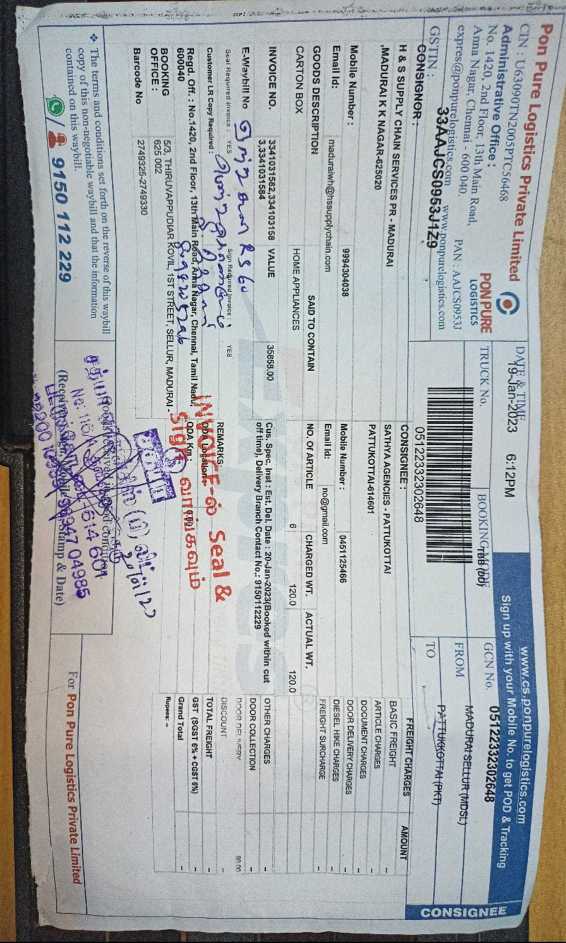 Pon Pure Logistics Private Limited
CIN : U63090TN2005PTC50468
Administrative Office :
No.1420, 2nd Floor, 13th Main Road,
Anna Nagar, Chennai - 600 040
expres@ponpurelogistics.com www.ponpurelogistics.com
GSTIN : 33AAJCS0953J1Z9 PAN : AAJCS0953J
PON PURE
LOGISTICS
DATE & TIME
19-Jan-2023 6:12PM
TRUCK No.
BOOKING
051223392302648
www.cs.ponpurelogistics.com
Sign up with your Mobile No. to get POD & Tracking
GCN No. 051223392302648
FROM MADURAI SELLUR (MDSL)
TO PATTUKKOTTAI (PKT)
CONSIGNEE
CONSIGNOR :
H & S SUPPLY CHAIN SERVICES PR - MADURAI
,MADURAI K K NAGAR-625020
Mobile Number : 9994304038
Email Id: maduraiwh@hssupplychain.com
CONSIGNEE :
SATHYA AGENCIES - PATTUKOTTAI
PATTUKOTTAI-614601
Mobile Number : 0451125466
Email Id: no@gmail.com
GOODS DESCRIPTION SAID TO CONTAIN NO. OF ARTICLE CHARGED WT. ACTUAL WT.
CARTON BOX HOME APPLIANCES 6 120.0 120.0
INVOICE NO. 3341031582,334103158 VALUE 35858.00
3,3341031584
E-Waybill No
Cus. Spec. Inst : Est. Del. Date : 20-Jan-2023(Booked within cut
off time), Delivery Branch Contact No.: 9150112229
Seal Required Invoice : YES Sign Required Invoice : YES
REMARKS
Customer LR Copy Required :
ODA Location
ODA Km :
INVOICE-ல் Seal &
Sign வாங்கவும்
Regd. Off. : No.1420, 2nd Floor, 13th Main Road, Anna Nagar, Chennai, Tamil Nadu,
600040
BOOKING OFFICE : 50, THIRUVAPPUDIAR KOVIL, 1ST STREET, SELLUR, MADURAI -
625 002
Barcode No 2749325-2749330
FREIGHT CHARGES AMOUNT
BASIC FREIGHT
ARTICLE CHARGES
DOCUMENT CHARGES
DOOR DELIVERY CHARGES
DIESEL HIKE CHARGES
FREIGHT SURCHARGE
OTHER CHARGES -
DOOR COLLECTION -
DISCOUNT -
TOTAL FREIGHT -
GST (SGST 6% + CGST 6%) -
Grand Total -
Rupees: -
❖ The terms and conditions set forth on the reverse of this waybill
copy of this non-negotiable waybill and that the information
contained on this waybill.
9150 112 229
614 601
94347 04985
20/01/23
For Pon Pure Logistics Private Limited